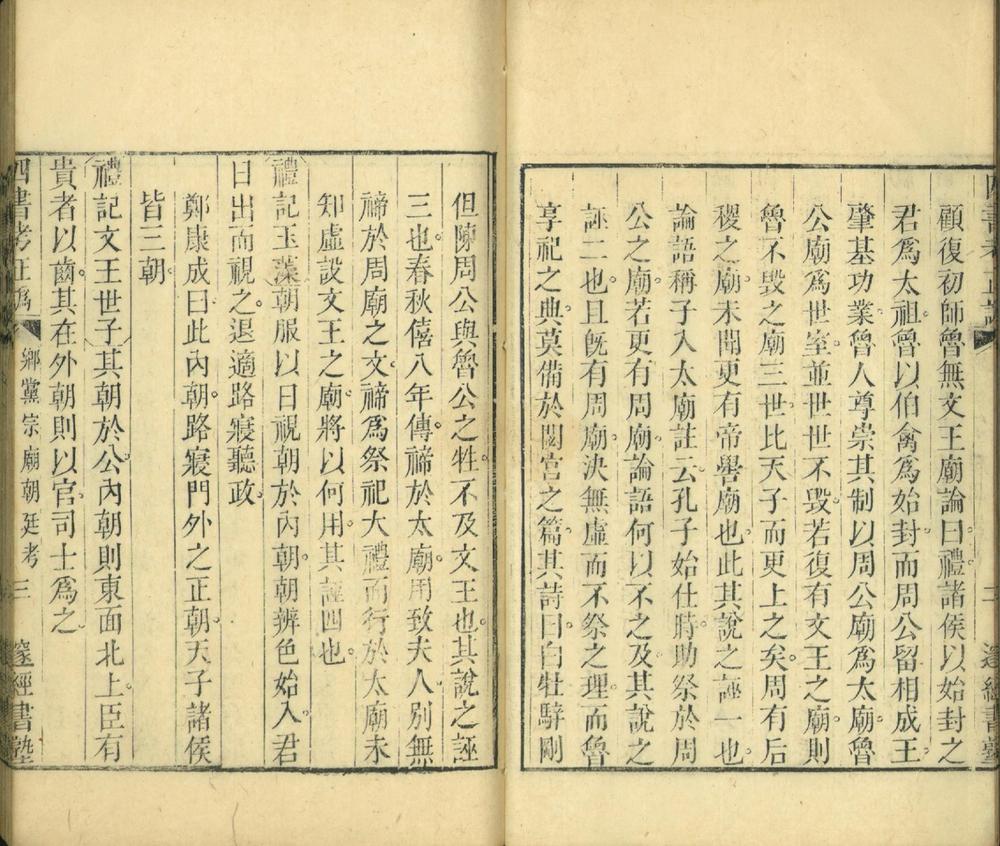 顧復初師魯無文王廟論曰禮諸侯以始封之
君爲太祖魯以伯禽爲始封而周公留相成王
肇基功業魯人尊崇其制以周公廟爲太廟魯
公廟爲世室並世世不毀若復有文王之廟則
魯不毀之廟三世比天子而更上之矣周有后
稷之廟未聞更有帝嚳廟也此其說之誣一也
論語稱子入太廟註云孔子始仕時助祭於周
公之廟若更有周廟論語何以不之及其說之
誣二也且旣有周廟決無虛而不祭之理而魯
享祀之典莫備於閟宮之篇其詩曰白牡騂剛
但陳周公與魯公之牲不及文王也其說之誣
三也春秋僖八年傳禘於太廟用致夫人別無
禘於周廟之文禘爲祭祀大禮而行於太廟未
知虛設文王之廟將以何用其誣四也
禮記玉藻朝服以日視朝於內朝朝辨色始入君
日出而視之退適路寢聽政
鄭康成曰此內朝路寢門外之正朝天子諸侯
皆三朝
禮記文王世子其朝於公內朝則東面北上臣有
貴者以齒其在外朝則以官司士爲之
四書考正譌 鄉黨宗廟朝廷考 三 邃經書塾